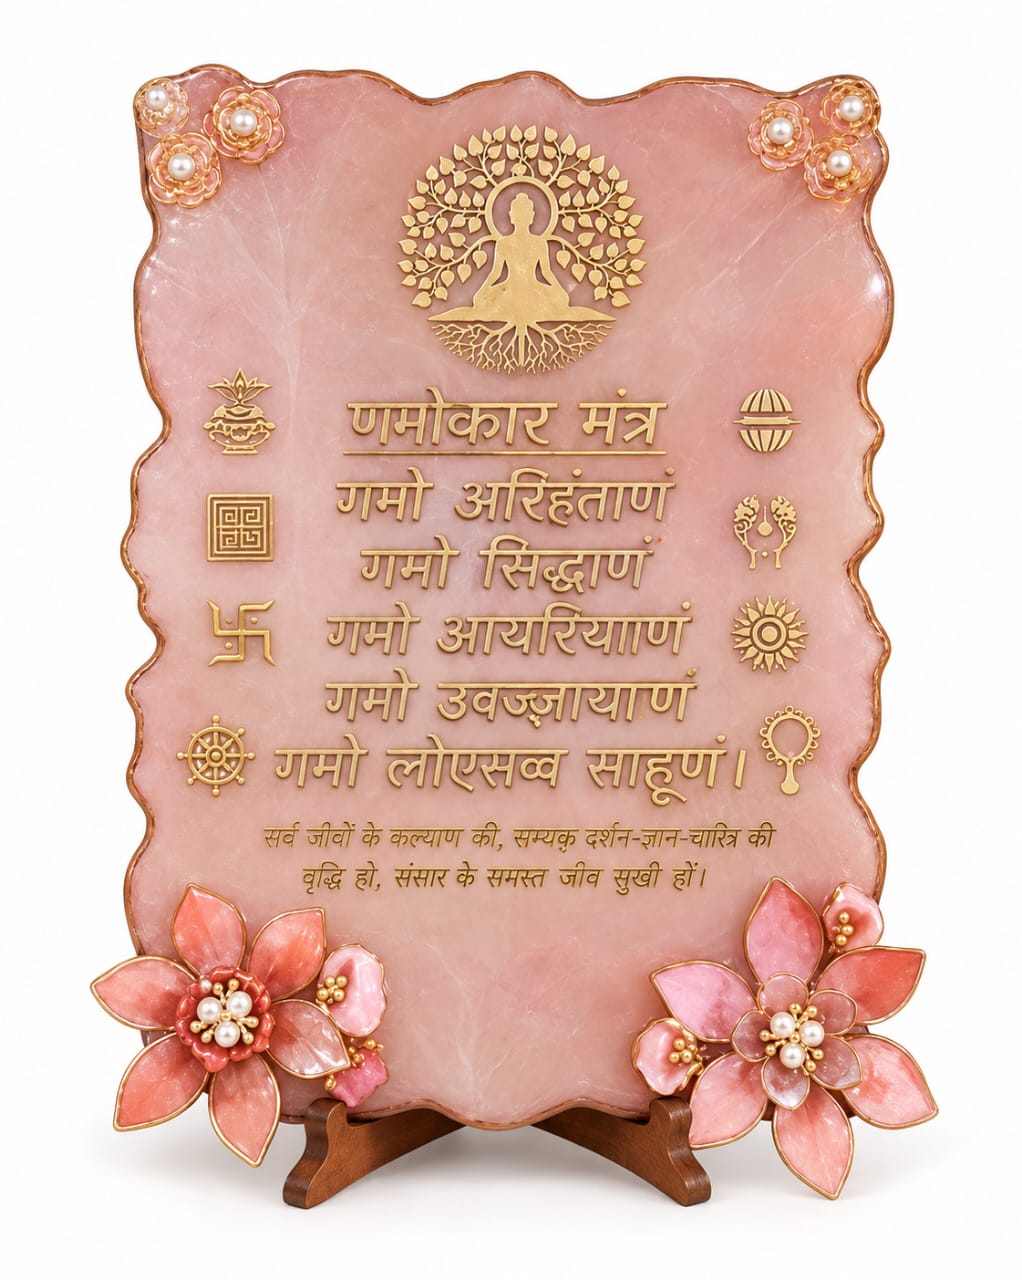 णमोकार मंत्र
गमो अरिहंताणं
गमो सिद्धाणं
गमो आयरियााणं
गमो उवज्ज़ायाणं
गमो लोएसव्व साहूणं।
सर्व जीवों के कल्याण की, सम्यक् दर्शन-ज्ञान-चारित्र की
वृद्धि हो, संसार के समस्त जीव सुखी हों।